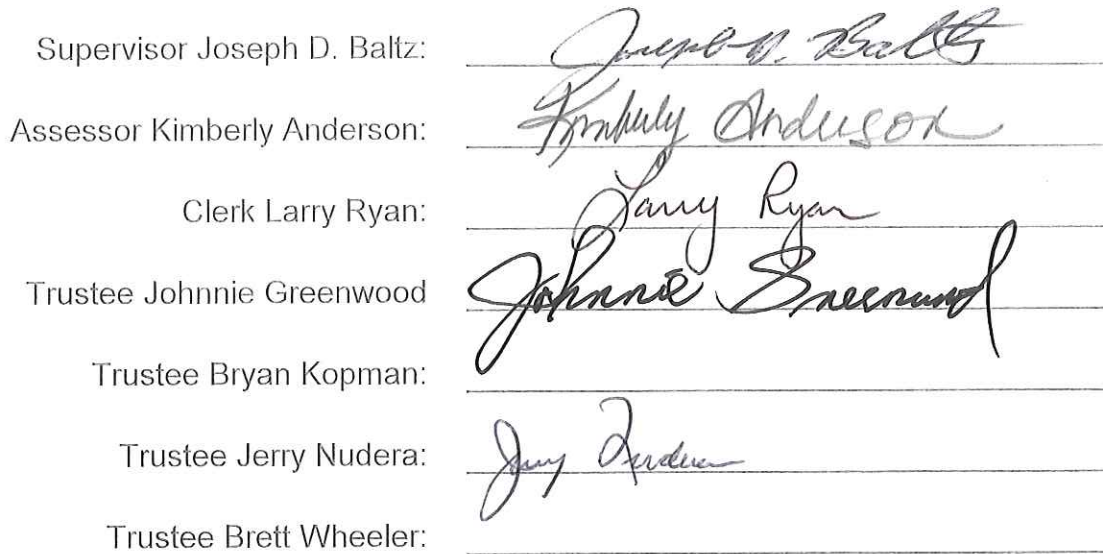 Supervisor Joseph D. Baltz: Joseph D. Baltz
Assessor Kimberly Anderson: Kimberly Anderson
Clerk Larry Ryan: Larry Ryan
Trustee Johnnie Greenwood Johnnie Greenwood
Trustee Bryan Kopman:
Trustee Jerry Nudera: Jerry Nudera
Trustee Brett Wheeler: